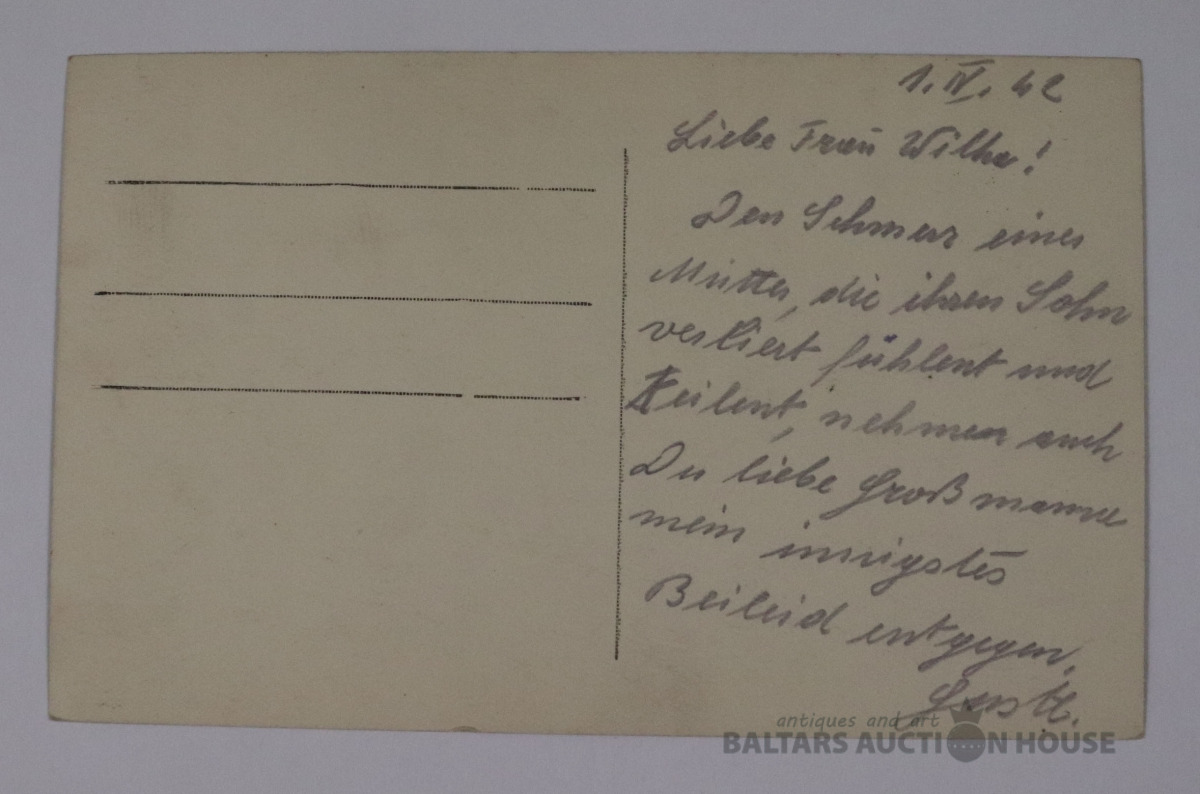 1. IV. 42
Liebe Frau Wilha!
Den Schmerz einer
Mutter, die ihren Sohn
verliert fühlent und
teilent, nehmen auch
Du liebe Großmama
mein innigstes
Beileid entgegen.
antiques and art
BALTARS AUCTION HOUSE